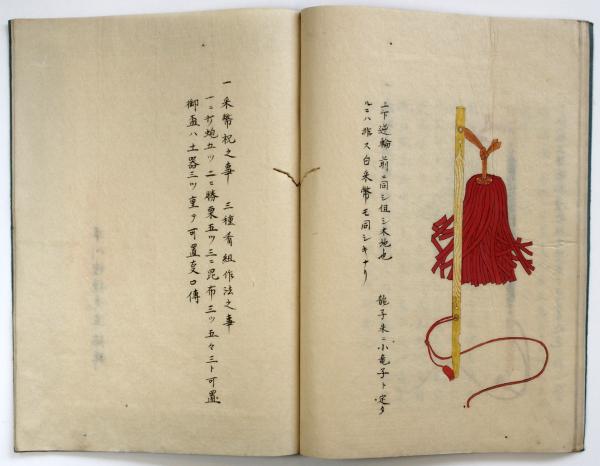 上下逆輪前ニ同シ但シ木地也　龍子朱ニ小竜子ト定タ
ルニハ非ス白采幣モ同シキナリ
一采幣祝之事　三種肴組作法之事
一ニ打鮑五ツ二ニ勝栗五ツ三ニ昆布三ツ五々三ト可置
御盃ハ土器三ツ重ヲ可置支口傳